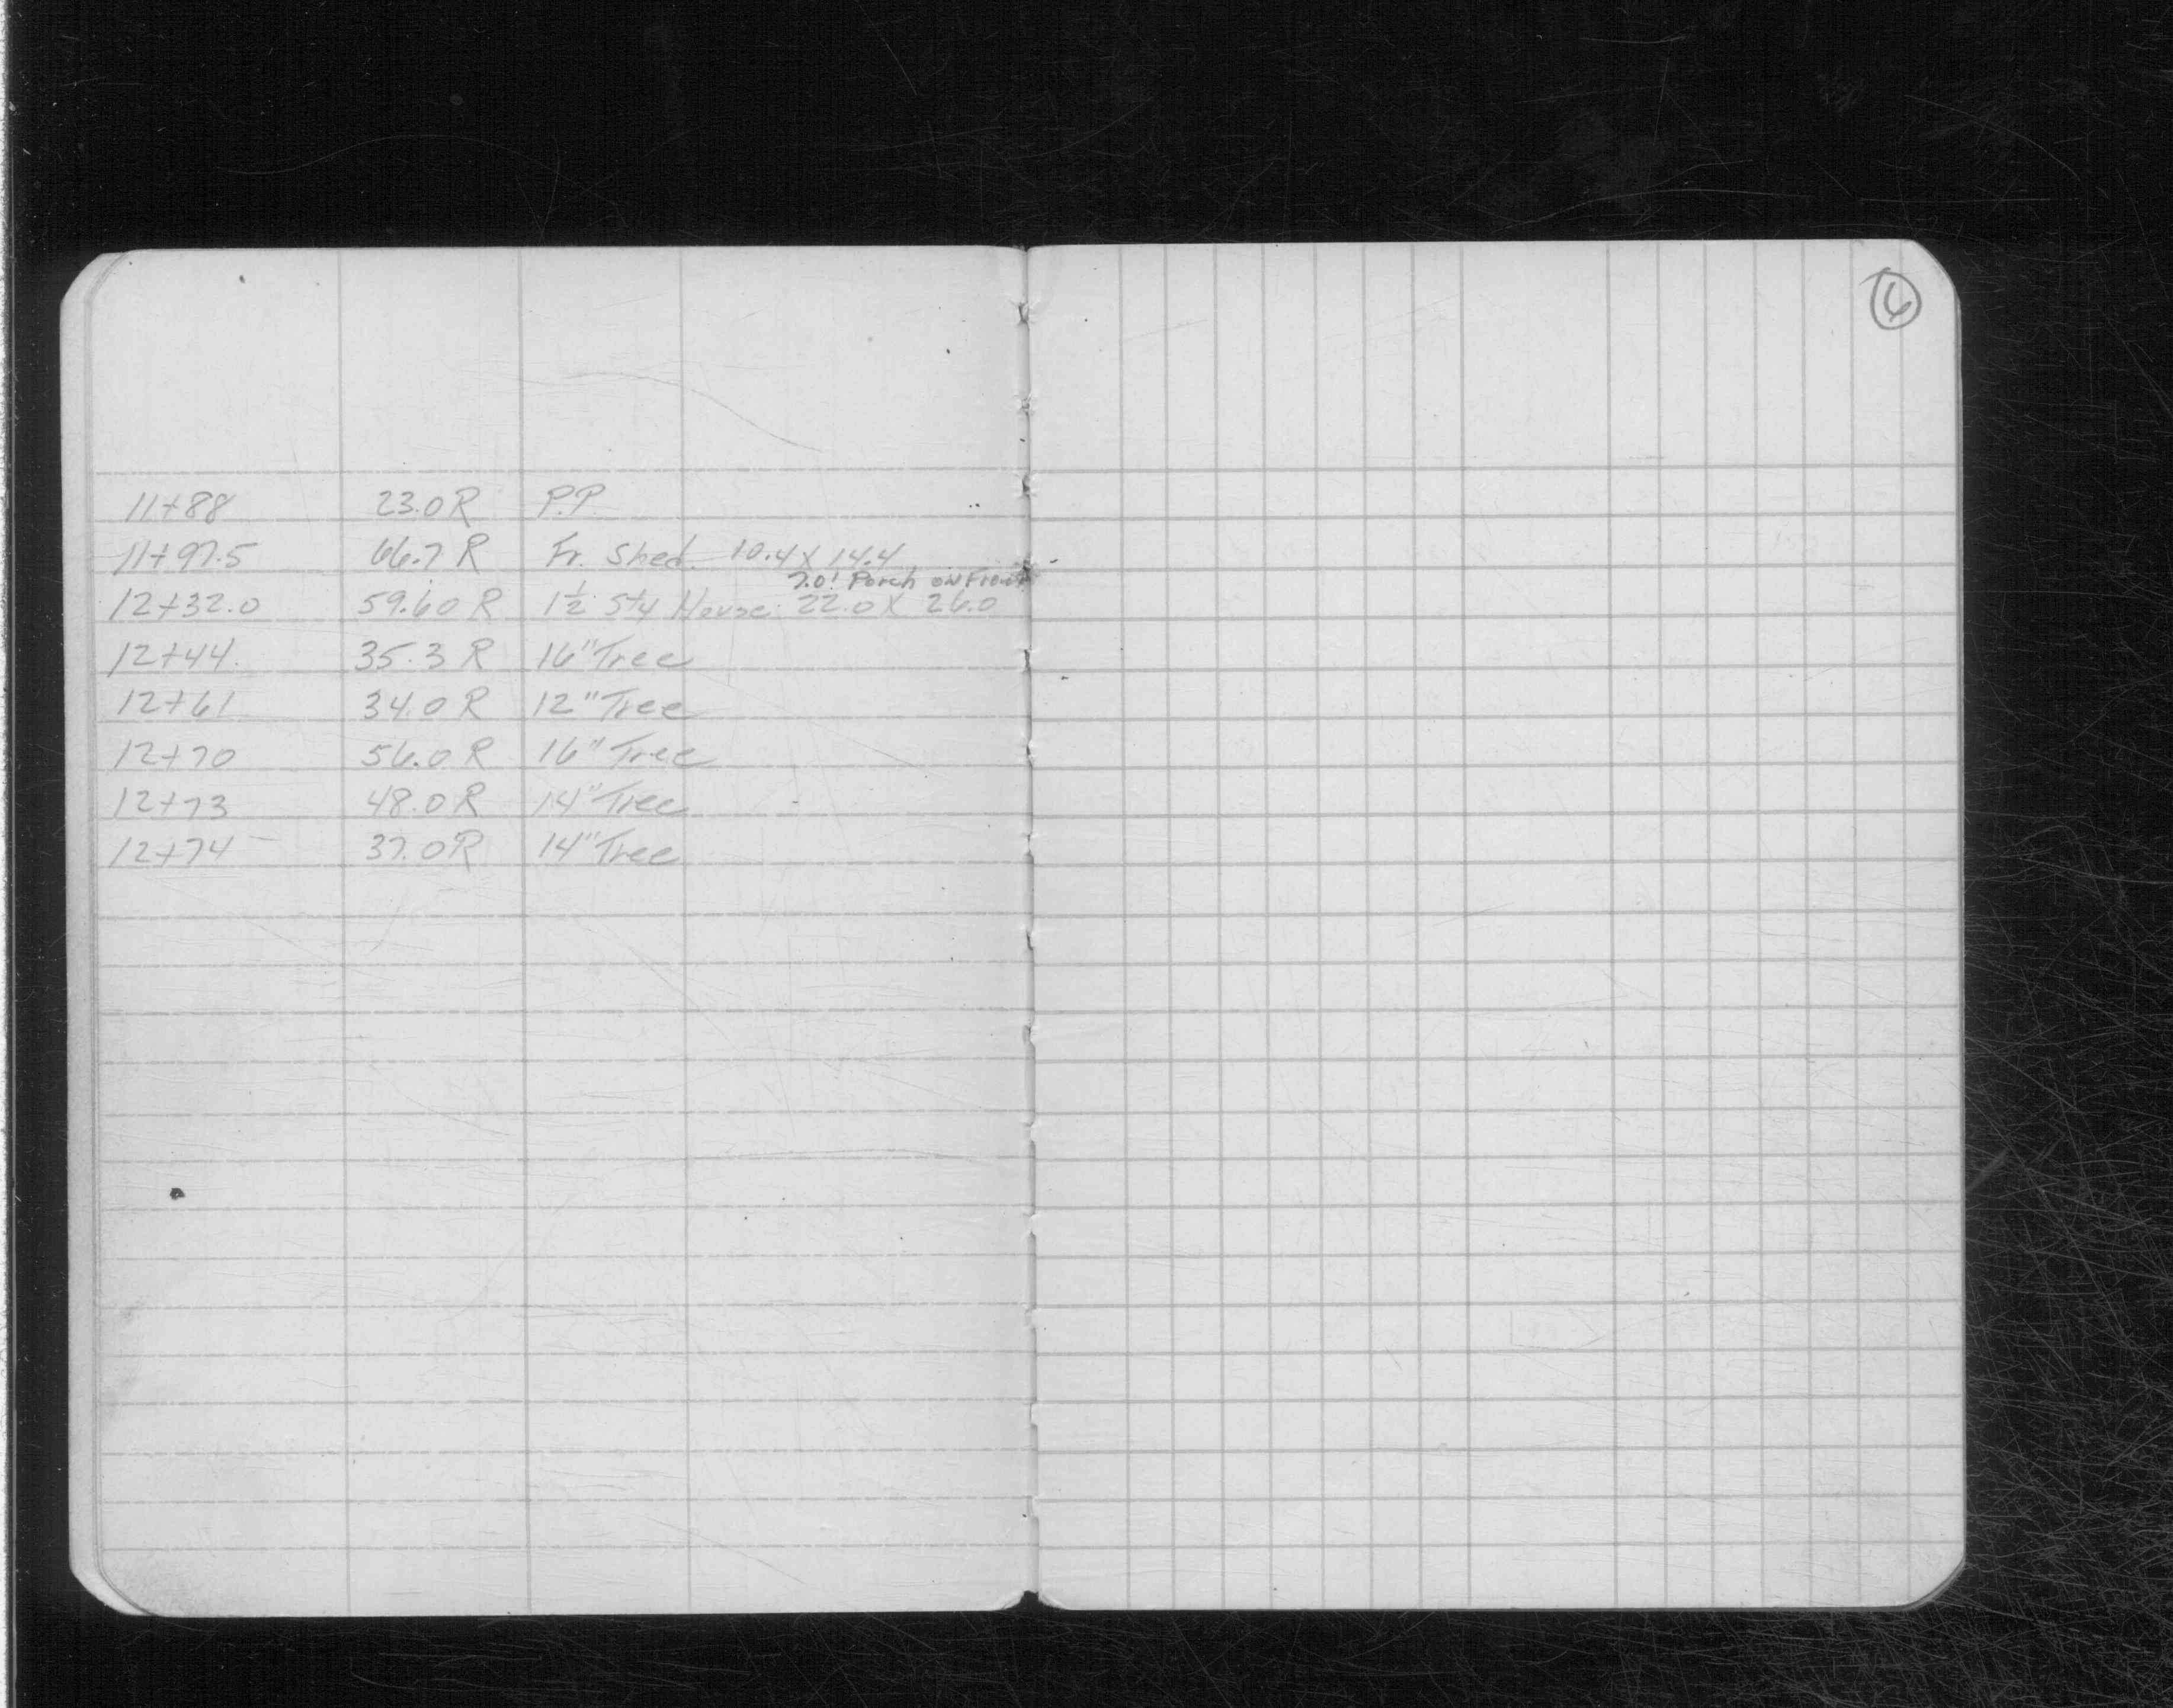 6
11+88 23.0 R P.P.
11+97.5 66.7 R Fr. Shed. 10.4 X 14.4
7.0' Porch on Front
12+32.0 59.60 R 1½ Sty House 22.0 X 26.0
12+44. 35.3 R 16" Tree
12+61 34.0 R 12" Tree
12+70 56.0 R 16" Tree
12+73 48.0 R 14" Tree
12+74 37.0 R 14" Tree